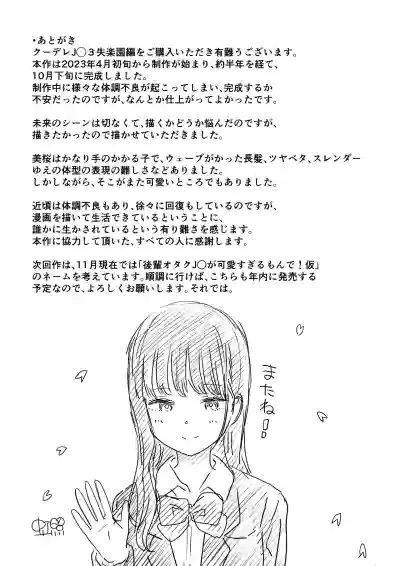 ・あとがき
クーデレJ◯３失楽園編をご購入いただき有難うございます。
本作は2023年4月初旬から制作が始まり、約半年を経て、
10月下旬に完成しました。
制作中に様々な体調不良が起こってしまい、完成するか
不安だったのですが、なんとか仕上がってよかったです。
未来のシーンは切なくて、描くかどうか悩んだのですが、
描きたかったので描かせていただきました。
美桜はかなり手のかかる子で、ウェーブがかった長髪、ツヤベタ、スレンダー
ゆえの体型の表現の難しさなどありました。
しかしながら、そこがまた可愛いところでもありました。
近頃は体調不良もあり、徐々に回復もしているのですが、
漫画を描いて生活できているということに、
誰かに生かされているという有り難さを感じます。
本作に協力して頂いた、すべての人に感謝します。
次回作は、11月現在では「後輩オタクJ◯が可愛すぎるもんで！仮」
のネームを考えています。順調に行けば、こちらも年内に発売する
予定なので、よろしくお願いします。それでは。
またね!!